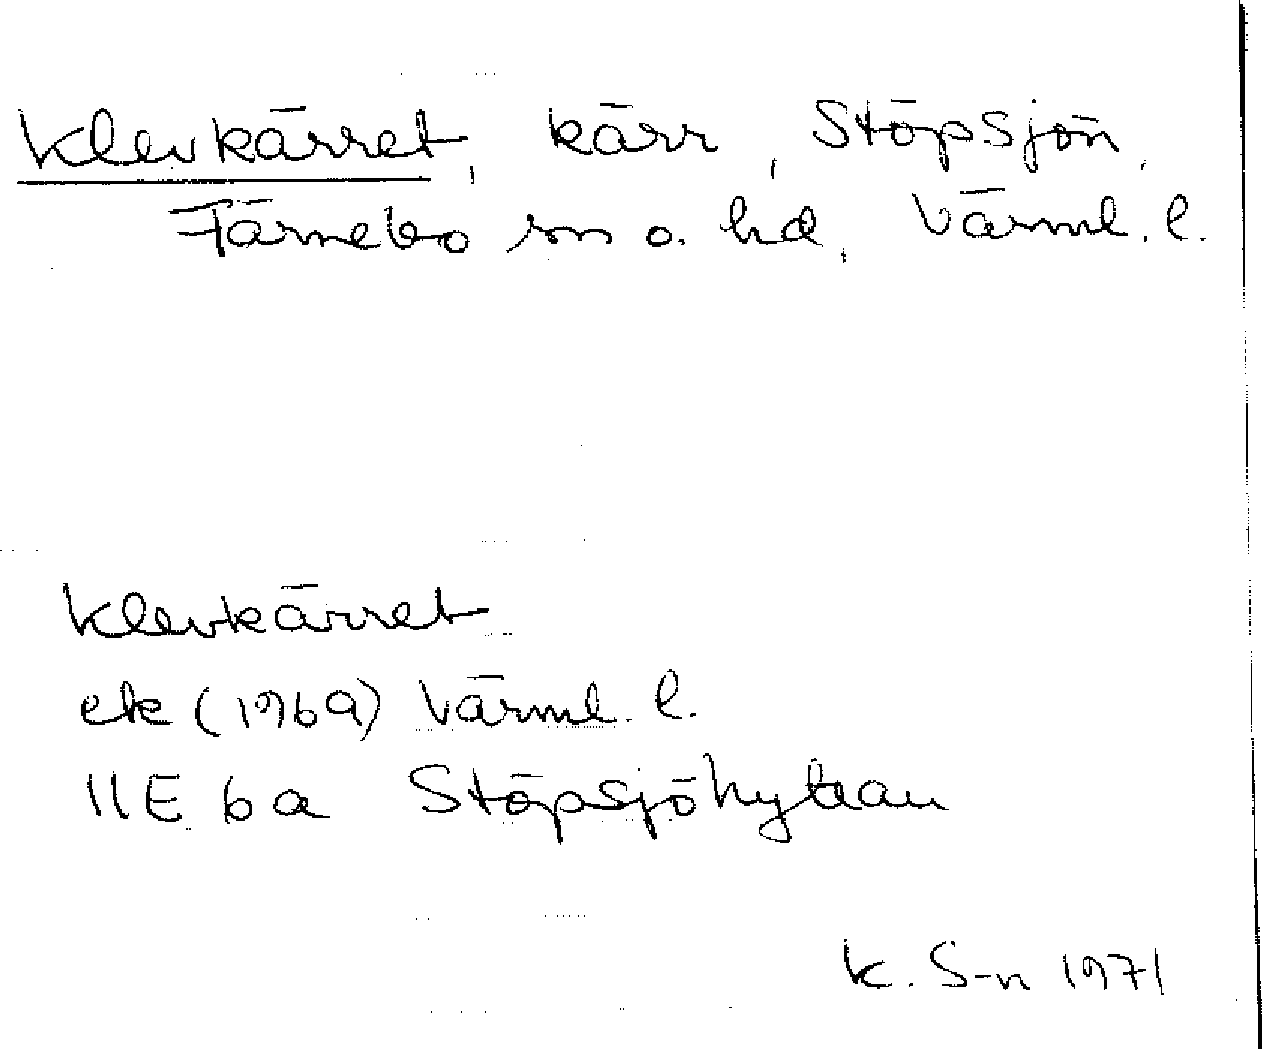 Klevkärret, kärr, Stöpsjön,
Färnebo sn o. hd, Värml. l.
Klevkärret
ek (1969) Värml. l.
11E 6a Stöpsjöhyttan
K. S-n 1971